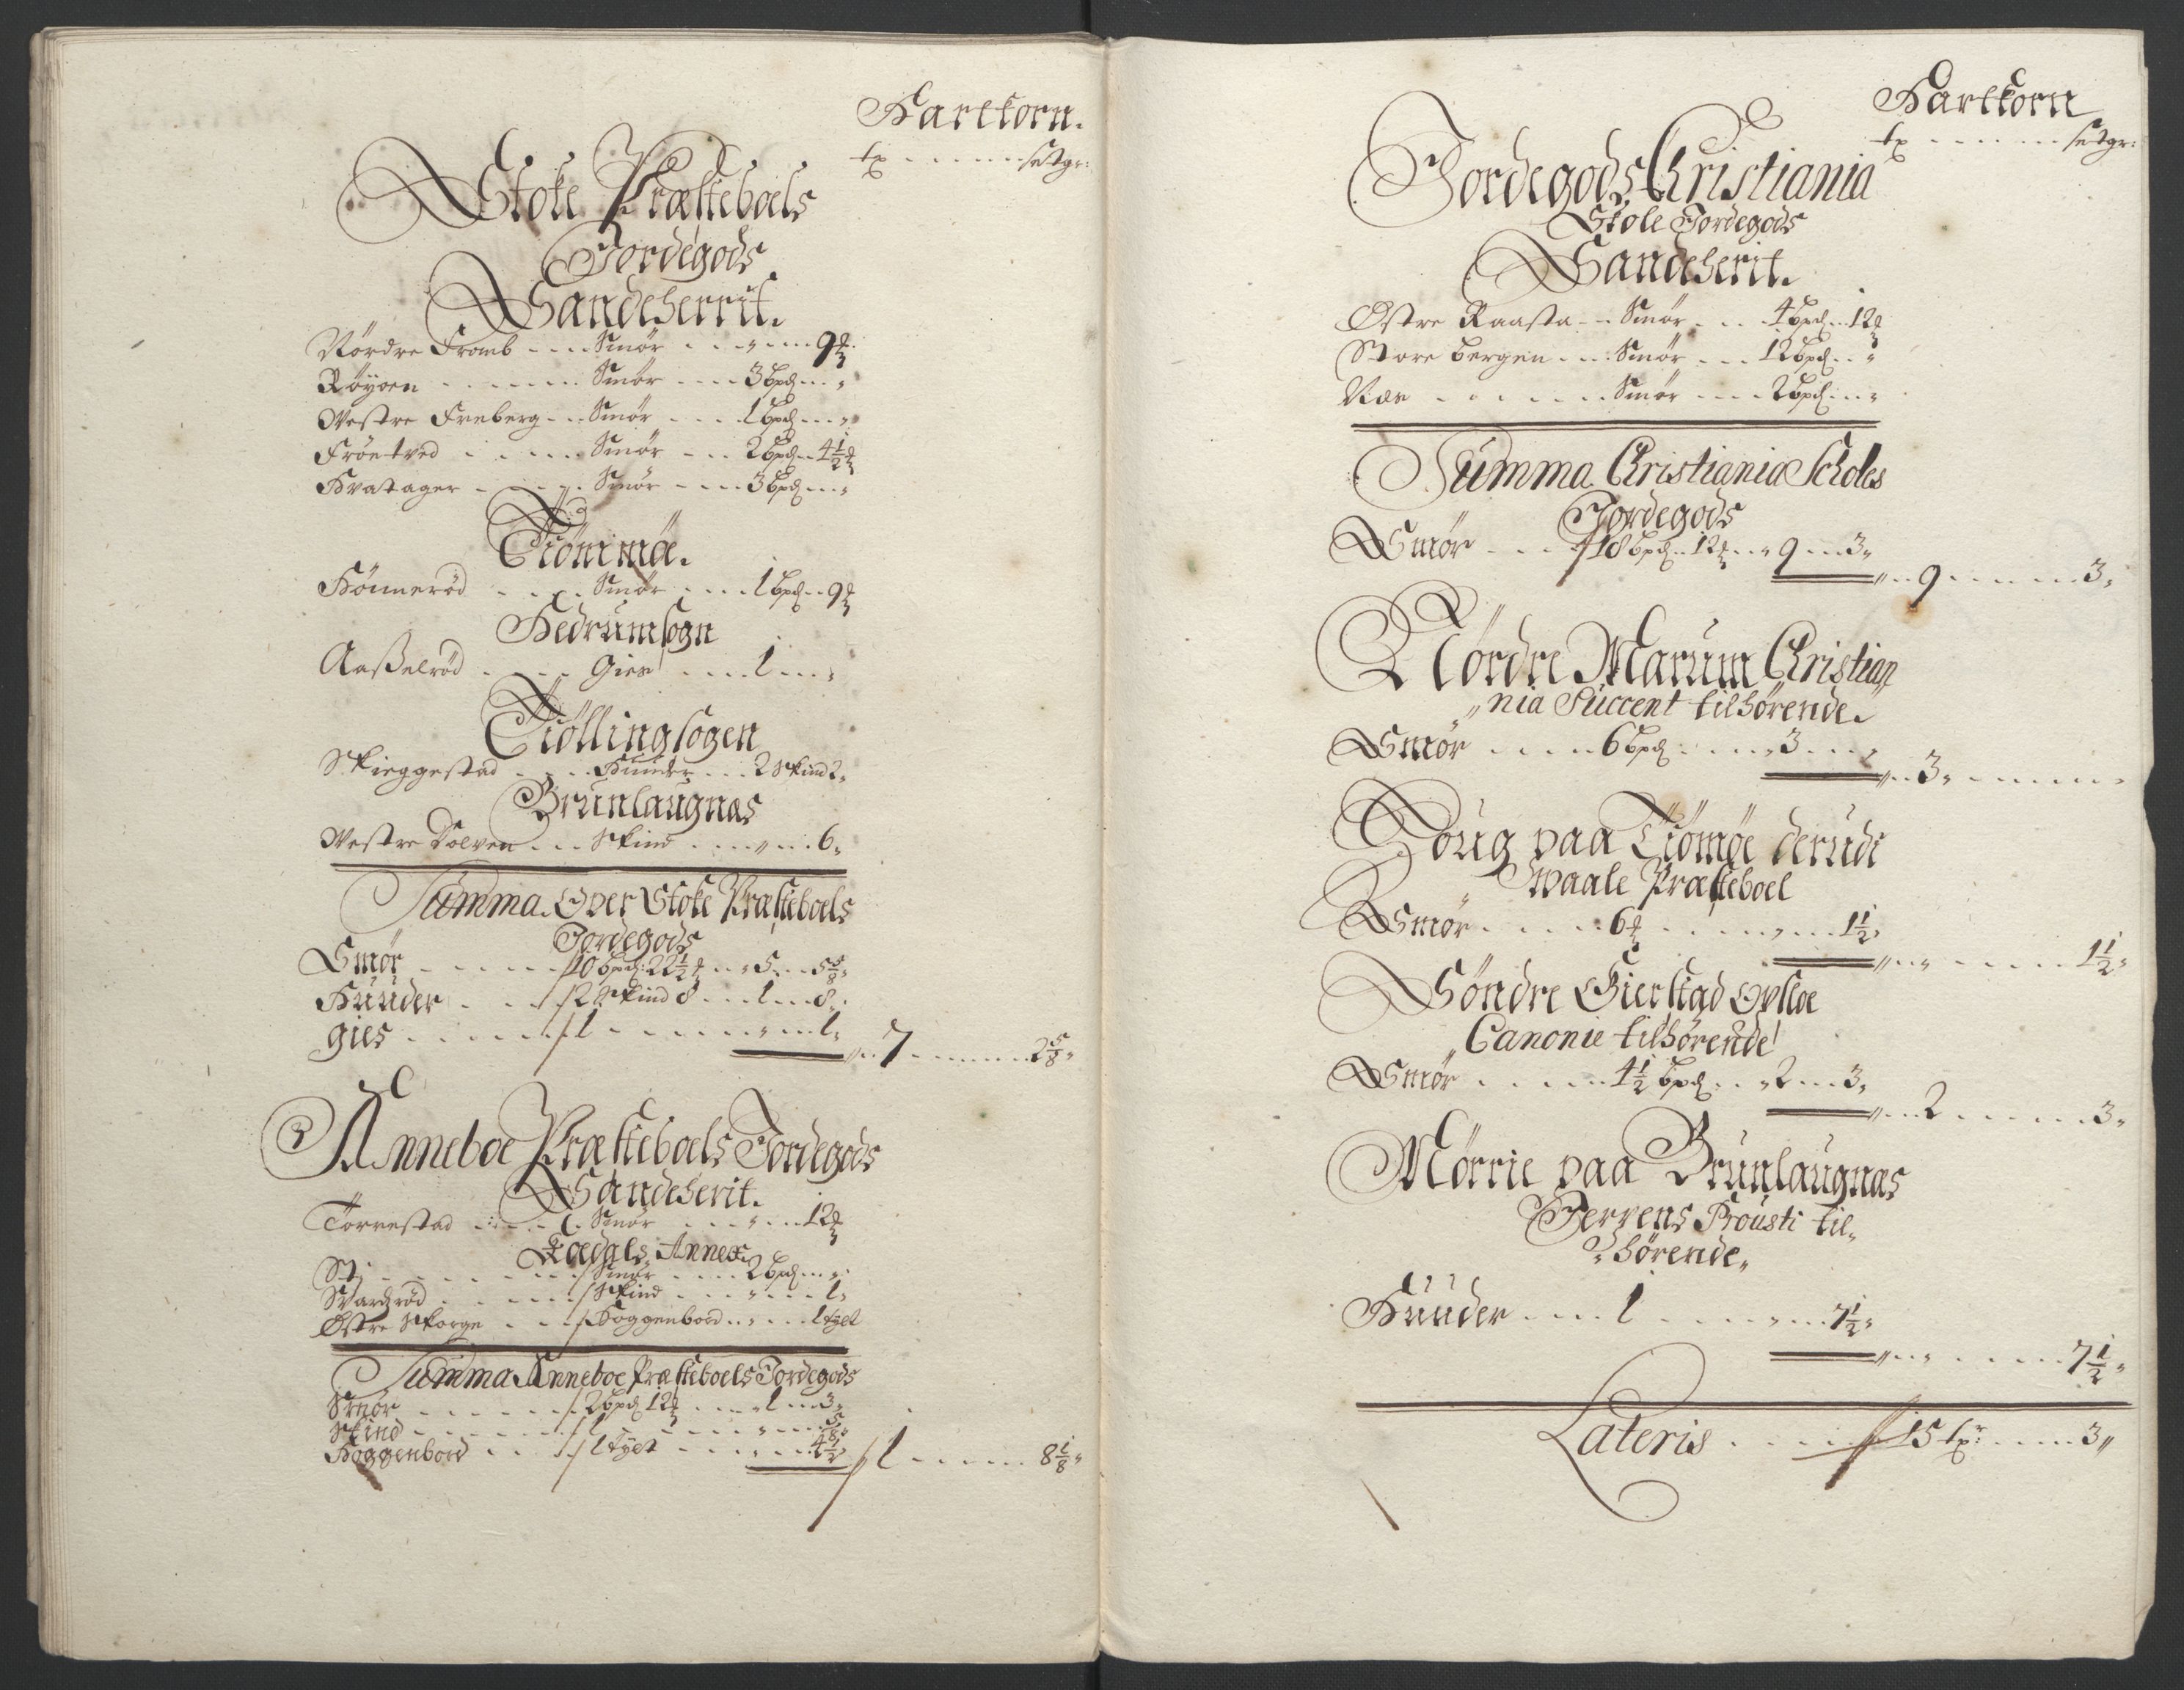 Hartkorn.
tr - - - - - setgr:
Stoke Præsteboels
Jordegods
Sandeherrit.
Nördre Fromb - - - - Smör - - - „ - - - 9 ℔
Röyoen - - - - - Smör - - - - 3 bpd - - „
Westre Freberg - - Smör - - - - 1 bpd - - „
Fröntved - - - - Smör - - - 2 bpd - - 4½ ℔
Hvatager - - - - Smör - - - 3 bpd - - „
Tiömmöe.
Hönnerød - - - - Smör - - - - 1 bpd - - 9 ℔
Hedrumsogn
Aasselröd - - - - Gies - - - - 1 - - „
Tiöllingsogen
Skieggestad - - - - Huuder - - - 2 Skind 2„
Brunlaugnæs
Westre Dolven - - - Skind - - - „ - - 6„
Summa Over Stoke Præsteboels
Jordegods
Smør - - - - - 10 bpd: 22½ ℔ - - „ 5 - - 5⅝„
Huuder - - - 2 Skind 8 - - - 1 - - 8„
gies - - - - - 1 - - - - - „ - - 1„
„ - - 7 - - - - - 2⅝„
Anneboe Præsteboels Jordegods
Sandeherit.
Torrestad - - - - Smör - - - „ - - - 12 ℔
Fodals Annex
Sti - - - - - - Smör - - - - 2 bpd - - „
Svartzröd - - - - - Skind - - - „ - - - 1„
Østre Skorge - - - Hoggenbord - - „ - - - 1 tylt
Summa Anneboe Præsteboels Jordegods
Smør - - - - - - 2 bpd 12 ℔ - - - „ 1 - - 3„
Skind - - - - - - 1 - - - - - „ - - ⅝„
Hoggenbord - - - 1 tylt - - - - „ - - 4½„
1 - - - - - 8⅛„
Hartkorn
tr - - - - - - setgr:
Jordegods Christiania
Skole Jordegods
Sandeherit.
Østre Raasta - - Smör - - - 4 bpd - - 12 ℔
Store Bergen - - - Smör - - - 12 bpd - - „
Ræe - - - - - - Smör - - - - 2 bpd - - „
Summa Christiania Scholes
Jordegods
Smør - - - 18 bpd - - 12 ℔ - - „ 9 - - 3„
„ - - 9 - - - - - 3„
Nördre Marum Christian
„nia Succent tilhørende.
Smør - - - - 6 bpd - - - - „ 3 - - - „
„ - - 3„ - - - - - „
Houg paa Tiømøe derudi
Waale Præsteboel
Smør - - - - 6 ℔ - - - - - „ - - 1½„
„ - - „ - - - - - 1½„
Søndre Gierstad Opsloe
„Canonie tilhørende
Smør - - - - - 4½ bpd - - „ 2 - - 3„
„ - - 2 - - - - - 3„
Mørrie paa Brunlaugnæs
Herrens Prousti til„
„hørende„
Huuder - - - - 1 - - - - - „ - - 7½„
„ - - „ - - - - - 7½„
Lateris - - - - - 15 tr: - - - - 3„